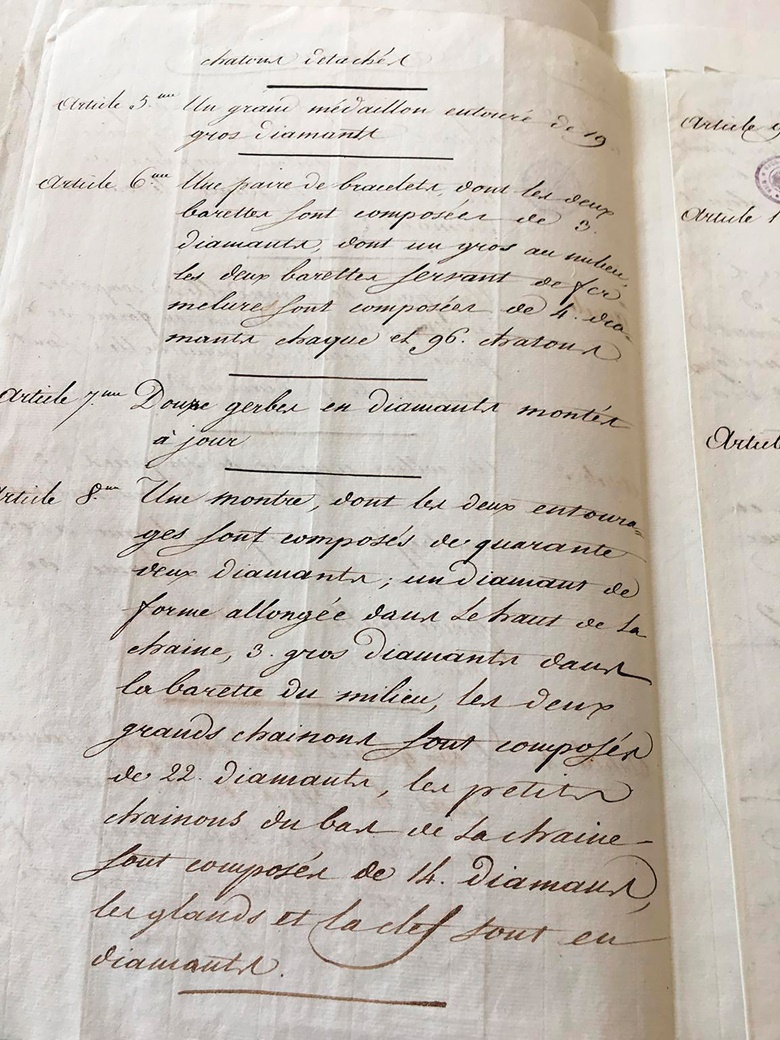 chatons detachés
Article 5.me Un grand médaillon entouré de 19
gros diamants
Article 6.me Une paire de bracelets, dont les deux
barettes sont composées de 3.
diamants, dont un gros au milieu,
les deux barettes servant de fer
melures sont composées de 4. dia-
mants chaque et 96. chatons
Article 7.me Douze gerbes en diamants montés
à jour
Article 8.me Une montre, dont les deux entoura-
ges sont composés de quarante
deux diamants; un diamant de
forme allongée dans le haut de la
chaine, 3. gros diamants dans
la barette du milieu, les deux
grands chainons sont composés
de 22. diamants, les petits
chainons du bas de la chaine
sont composés de 14. diamans,
les glands et la clef sont en
diamants.
Article 9
Article 1
Article